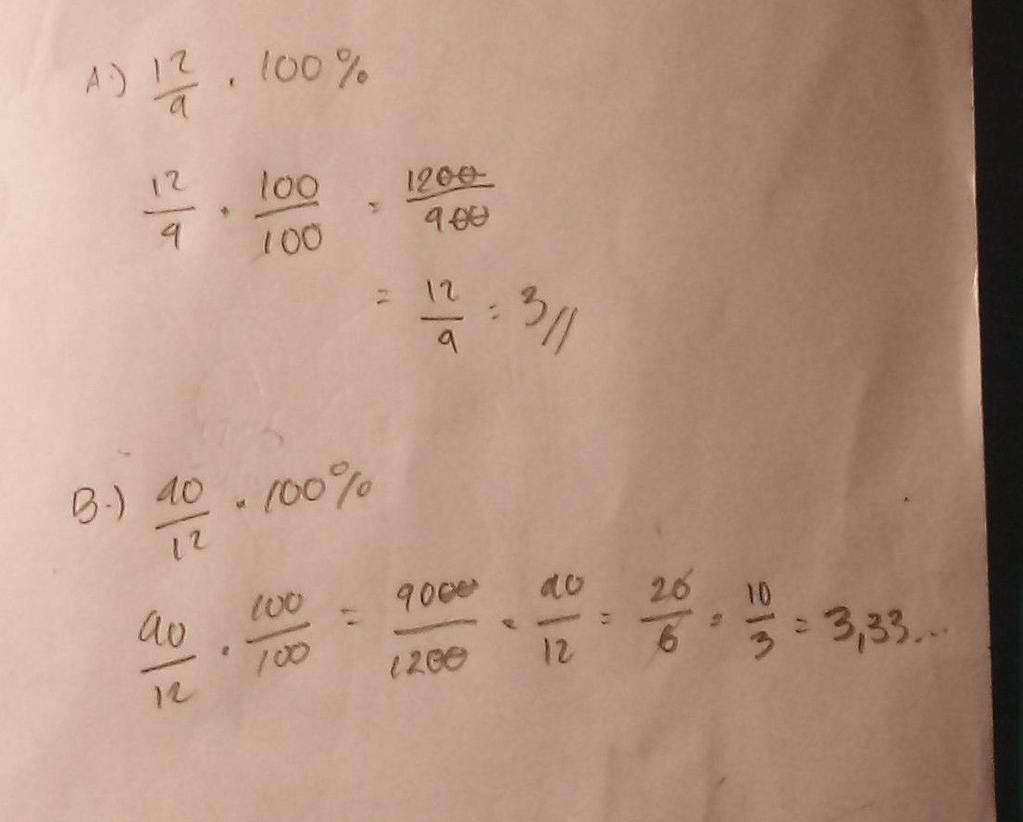 A.) 12/9 . 100%
12/9 . 100/100 = 1200/900
= 12/9 = 3//
B.) 90/12 . 100%
90/12 . 100/100 = 9000/1200 = 90/12 = 20/6 = 10/3 = 3,33...